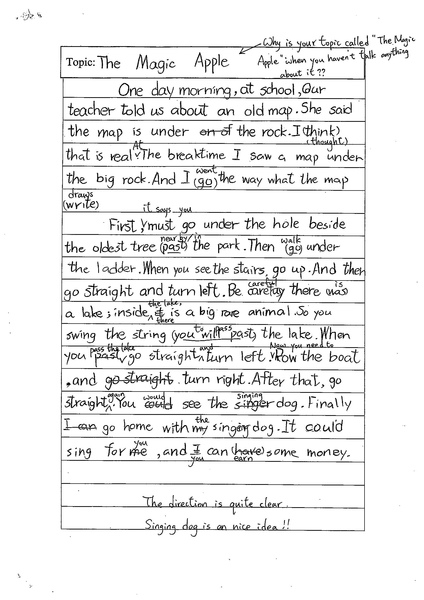 Why is your topic called "The Magic
Topic: The Magic Apple
Apple" when you haven't talk anything
about it??
One day morning, at school, Our
teacher told us about an old map. She said
the map is under on of the rock. I (think)
(thought)
that is real. The breaktime I saw a map under
At
the big rock. And I (go) the way what the map
went
draws
(write)
it says you
First, must go under the hole beside
the oldest tree (past) the park. Then (go) under
near by/in
walk
the ladder. When you see the stairs, go up. And then
go straight and turn left. Be there was
careful
is
a lake; inside, it is a big rare animal. So you
the lake,
there
swing the string (you will past) the lake. When
to pass
you (past), go straight, turn left. Row the boat
pass the lake
and
Now you need to
and go straight turn right. After that, go
straight. You could see the singer dog. Finally
again
would
singing
I can go home with my singing dog. It could
the
sing for me, and I can (have) some money.
you
you
earn
The direction is quite clear.
Singing dog is an nice idea!!